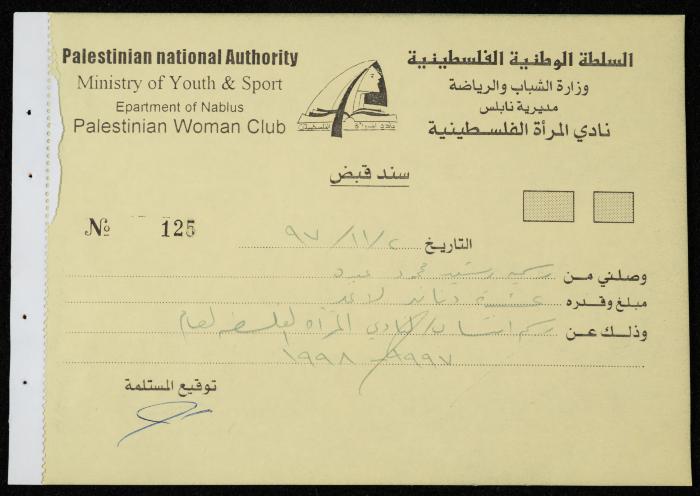 Palestinian national Authority
Ministry of Youth & Sport
Epartment of Nablus
Palestinian Woman Club
السلطة الوطنية الفلسطينية
وزارة الشباب والرياضة
مديرية نابلس
نادي المرأة الفلسطينية
سند قبض
№ 125
التاريخ ٩٧/١١/٢
وصلني من رشيد محمود عبده
مبلغ وقدره عشرة دنانير لا غير
وذلك عن رسم انتساب لنادي المرأة الفلسطينية لعام
١٩٩٧ - ١٩٩٨
توقيع المستلمة